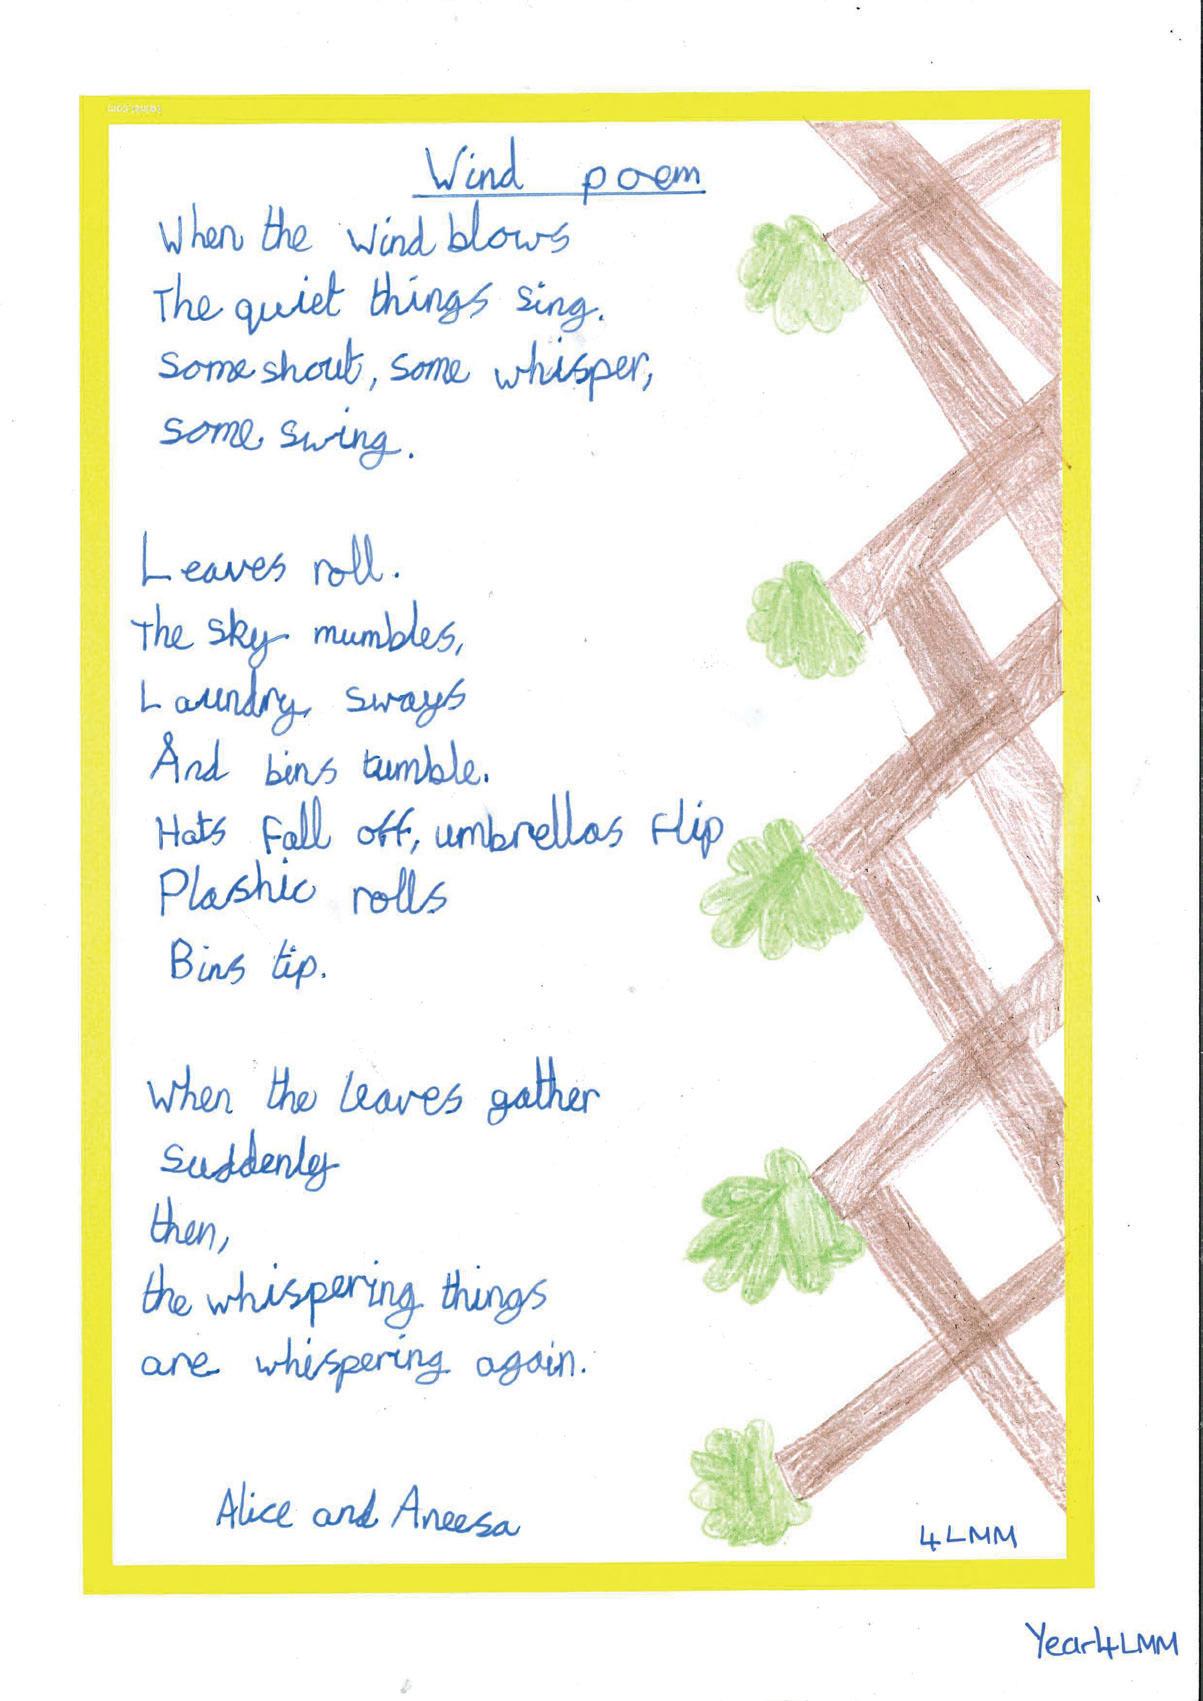 Wind poem
When the wind blows
The quiet things sing.
Some shout, some whisper,
some swing.
Leaves roll.
The sky mumbles,
Laundry sways
And bins tumble.
Hats fall off, umbrellas flip
Plashic rolls
Bins tip.
When the leaves gather
suddenly
then,
the whispering things
are whispering again.
Alice and Aneesa
4LMM
Year4LMM